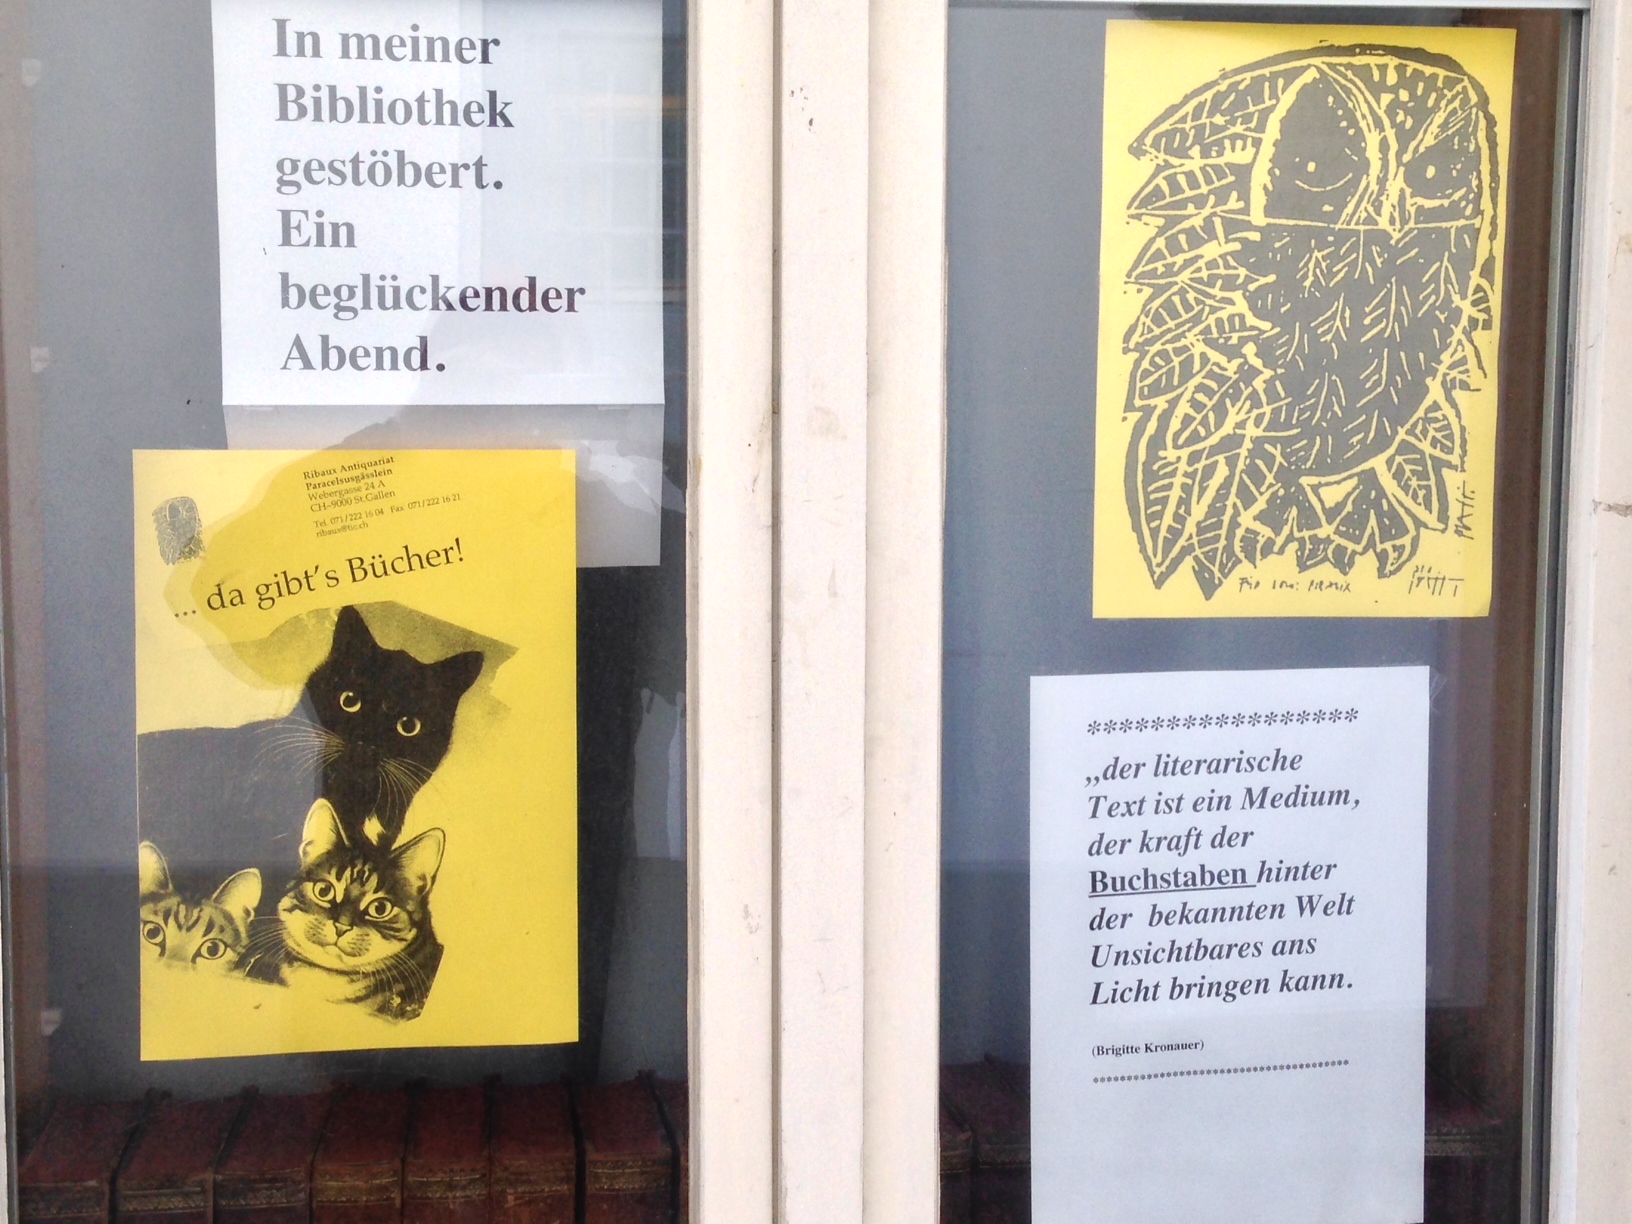 In meiner
Bibliothek
gestöbert.
Ein
beglückender
Abend.
Ribaux Antiquariat
Paracelsusgässlein
Webergasse 24 A
CH-9000 St.Gallen
Tel. 071/222 16 04 Fax 071/222 16 21
ribaux@tic.ch
... da gibt's Bücher!
*****************
„der literarische
Text ist ein Medium,
der kraft der
Buchstaben hinter
der bekannten Welt
Unsichtbares ans
Licht bringen kann.
(Brigitte Kronauer)